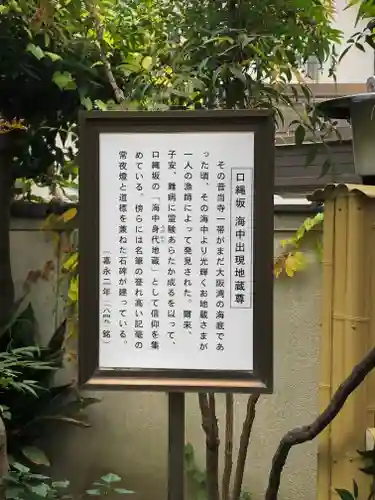 口縄坂 海中出現地蔵尊
その昔当寺一帯がまだ大阪湾の海底であ
った頃、その海中より光輝くお地蔵さまが
一人の漁師によって発見された。爾来、
子安、難病に霊験あらたか成るを以って、
口縄坂の「海中身代地蔵」として信仰を集
めている。傍らには名筆の誉れ高い記毫の
常夜燈と道標を兼ねた石碑が建っている。
(嘉永二年(一八四九)銘)